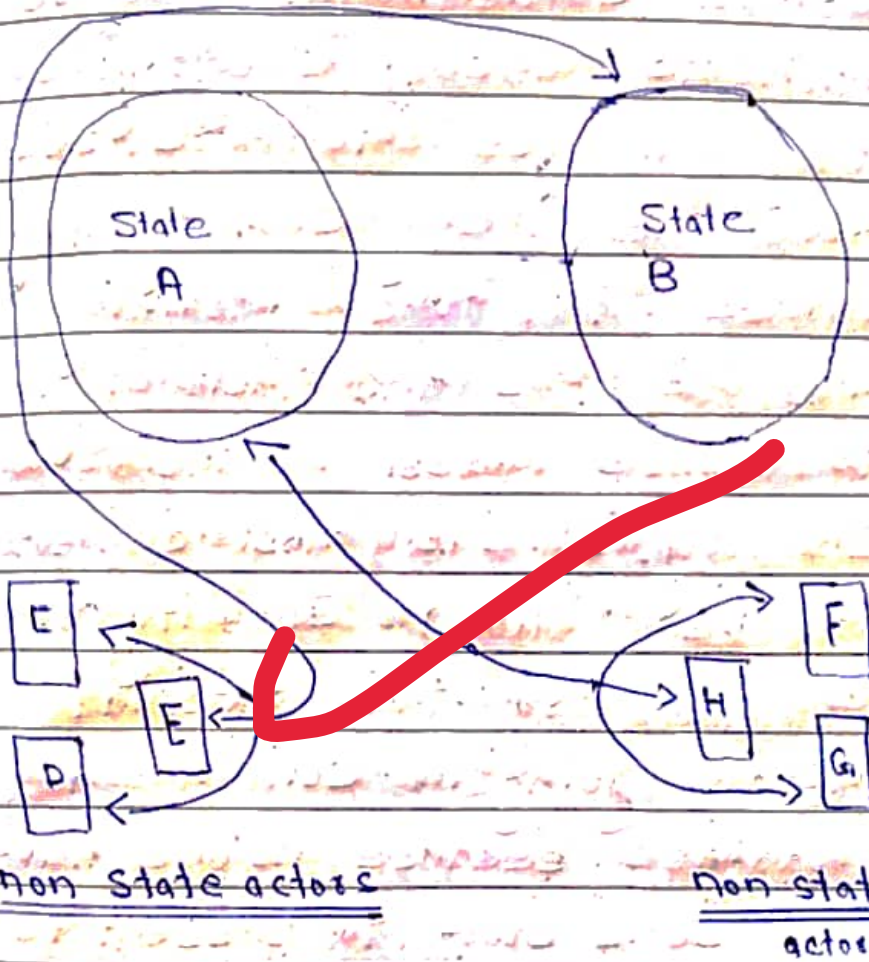 State
A
State
B
C
E
D
F
H
G
non State actors
non stat
actor